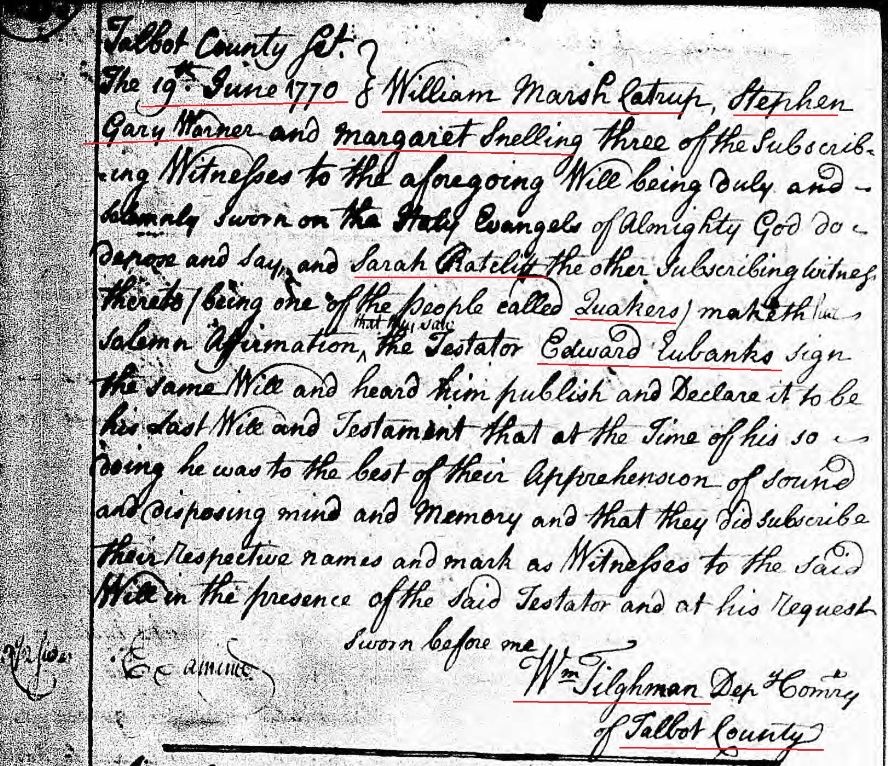 Talbot County Sct. }
The 19th. June 1770 } William Marsh Catrup, Stephen
Gary Warner and Margaret Snelling three of the Subscrib-
-ing Witnesses to the aforegoing Will being duly and
Solemnly sworn on the Holy Evangels of Almighty God do
depose and say, and Sarah Ratcliff the other Subscribing witness
thereto (being one of the people called Quakers) maketh
solemn Affirmation, ^ that they saw the Testator Edward Eubanks sign
the same Will and heard him publish and Declare it to be
his Last Will and Testament that at the Time of his so
doing he was to the best of their Apprehension of sound
and disposing mind and Memory and that they did subscribe
their respective names and mark as Witnesses to the said
Will in the presence of the said Testator and at his Request
sworn before me
Examined
Wm Tilghman Depy Comry
of Talbot County